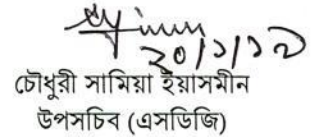 ২০/১/১৯
চৌধুরী সামিয়া ইয়াসমীন
উপসচিব (এসডিজি)